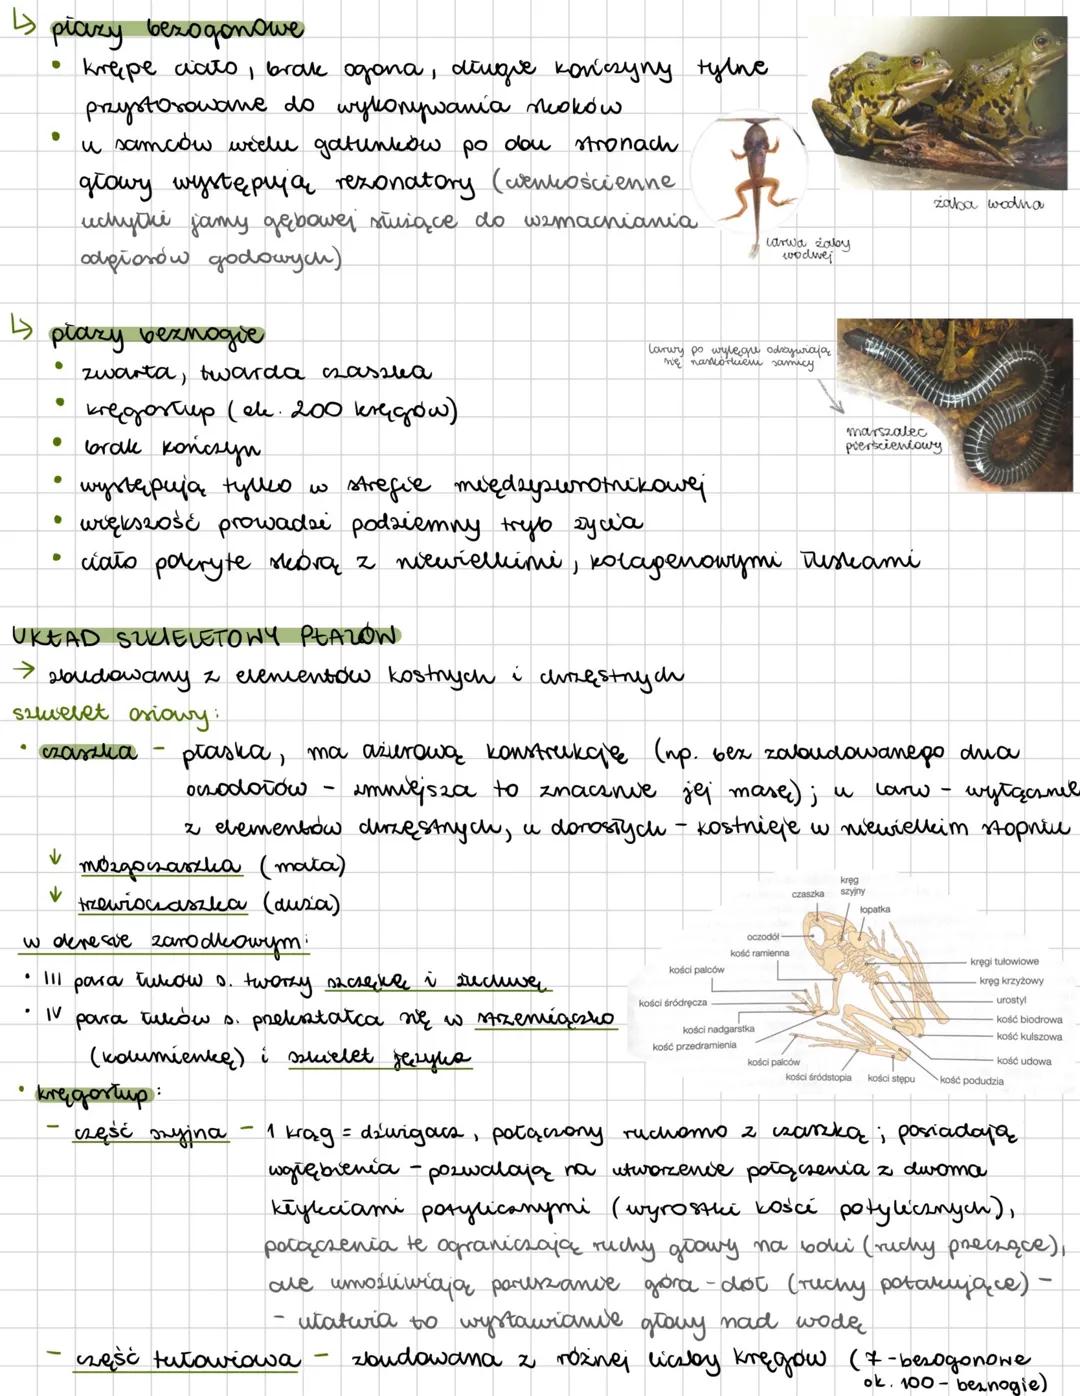 ↳ płazy bezogonowe
• krępe ciało, brak ogona, długie kończyny tylne
przystosowane do wykonywania skoków
• u samców wielu gatunków po obu stronach
głowy występują rezonatory (cienkościenne
uchyłki jamy gębowej służące do wzmacniania
odgłosów godowych)
żaba wodna
larwa żaby
wodnej
↳ płazy beznogie
• zwarta, twarda czaszka
• kręgosłup (ok. 200 kręgów)
• brak kończyn
• występują tylko w strefie międzyzwrotnikowej
• większość prowadzi podziemny tryb życia
• ciało pokryte skórą z niewielkimi, kolagenowymi łuskami
larwy po wylęgu odżywiają
się naskórkiem samicy
marszalec
pierścieniowy
UKŁAD SZKIELETOWY PŁAZÓW
→ zbudowany z elementów kostnych i chrzęstnych
szkielet osiowy:
• czaszka - płaska, ma ażurową konstrukcję (np. bez zabudowanego dna
oczodołów - zmniejsza to znacznie jej masę); u larw - wyłącznie
z elementów chrzęstnych, u dorosłych - kostnieje w niewielkim stopniu
↓ mózgoczaszka (mała)
↓ trzewioczaszka (duża)
w okresie zarodkowym:
• III para łuków s. tworzy szczękę i żuchwę
• IV para łuków s. przekształca się w strzemiączko
(kolumienkę) i szkielet języka
czaszka
kręg
szyjny
łopatka
oczodół
kość ramienna
kości palców
kości śródręcza
kości nadgarstka
kość przedramienia
kości palców
kości śródstopia
kości stępu
kość podudzia
kręgi tułowiowe
kręg krzyżowy
urostyl
kość biodrowa
kość kulszowa
kość udowa
• kręgosłup:
- część szyjna - 1 krąg = dźwigacz, połączony ruchomo z czaszką; posiadają
wgłębienia - pozwalają na utworzenie połączenia z dwoma
kłykciami potylicznymi (wyrostki kości potylicznych),
połączenia te ograniczają ruchy głowy na boki (ruchy przeczące),
ale umożliwiają poruszanie góra - dół (ruchy potakujące) -
- ułatwia to wystawianie głowy nad wodę
- część tułowiowa - zbudowana z różnej liczby kręgów (7 - bezogonowe
ok. 100 - beznogie)